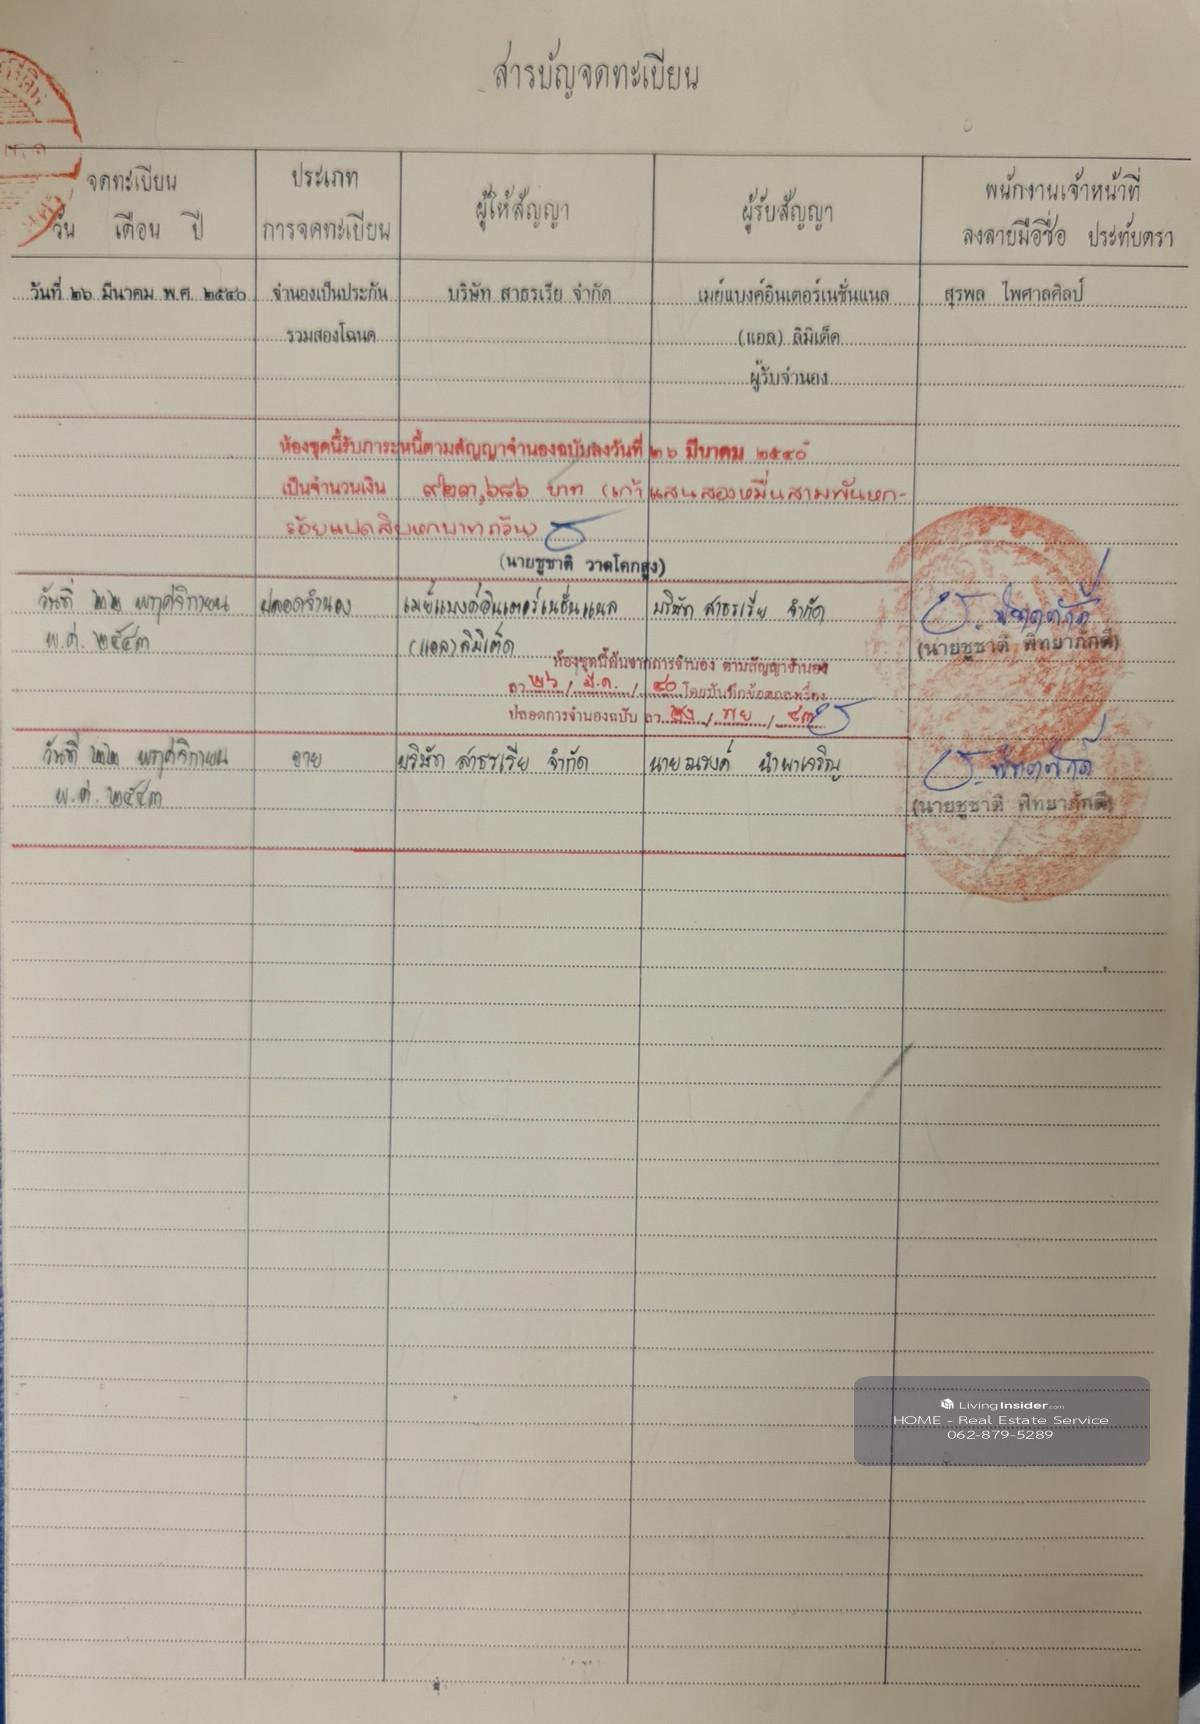 สารบัญจดทะเบียน
จดทะเบียน
วัน เดือน ปี
ประเภท
การจดทะเบียน
ผู้ให้สัญญา
ผู้รับสัญญา
พนักงานเจ้าหน้าที่
ลงลายมือชื่อ ประทับตรา
วันที่ ๒๖ มีนาคม พ.ศ. ๒๕๔๐ จำนองเป็นประกัน บริษัท สาธรเรีย จำกัด เมย์แบงค์อินเตอร์เนชั่นแนล สุรพล ไพศาลศิลป์
รวมสองโฉนด (แอล) ลิมิเต็ด
ผู้รับจำนอง
ห้องชุดนี้รับภาระหนี้ตามสัญญาจำนองฉบับลงวันที่ ๒๖ มีนาคม ๒๕๔๐
เป็นจำนวนเงิน ๙๒๓,๖๘๖ บาท (เก้าแสนสองหมื่นสามพันหก-
ร้อยแปดสิบหกบาทถ้วน)
(นายชูชาติ วาดโคกสูง)
วันที่ ๒๒ พฤศจิกายน ปลอดจำนอง เมย์แบงค์อินเตอร์เนชั่นแนล บริษัท สาธรเรีย จำกัด
พ.ศ. ๒๕๔๓ (แอล) ลิมิเต็ด (นายชูชาติ พิทยาภักดี)
ห้องชุดนี้พ้นจากการจำนอง ตามสัญญาจำนอง
ลว. ๒๖ / มี.ค. / ๔๐ โดยบันทึกข้อตกลงเรื่อง
ปลอดการจำนองฉบับ ลว. ๒๒ / พย / ๔๓
วันที่ ๒๒ พฤศจิกายน ขาย บริษัท สาธรเรีย จำกัด นายณรงค์ นำพาเจริญ
พ.ศ. ๒๕๔๓ (นายชูชาติ พิทยาภักดี)
LivingInsider.com
HOME - Real Estate Service
062-879-5289